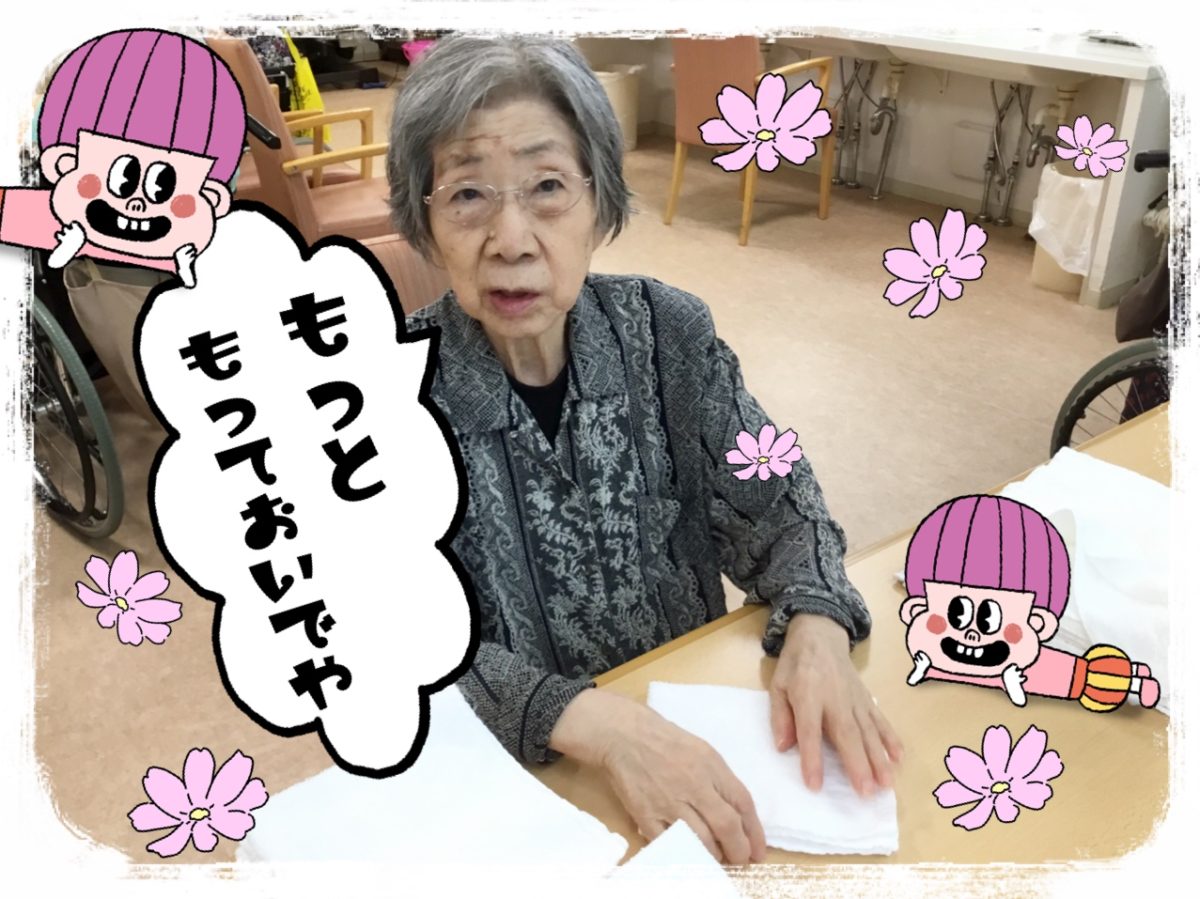 もっと
もっておいでや